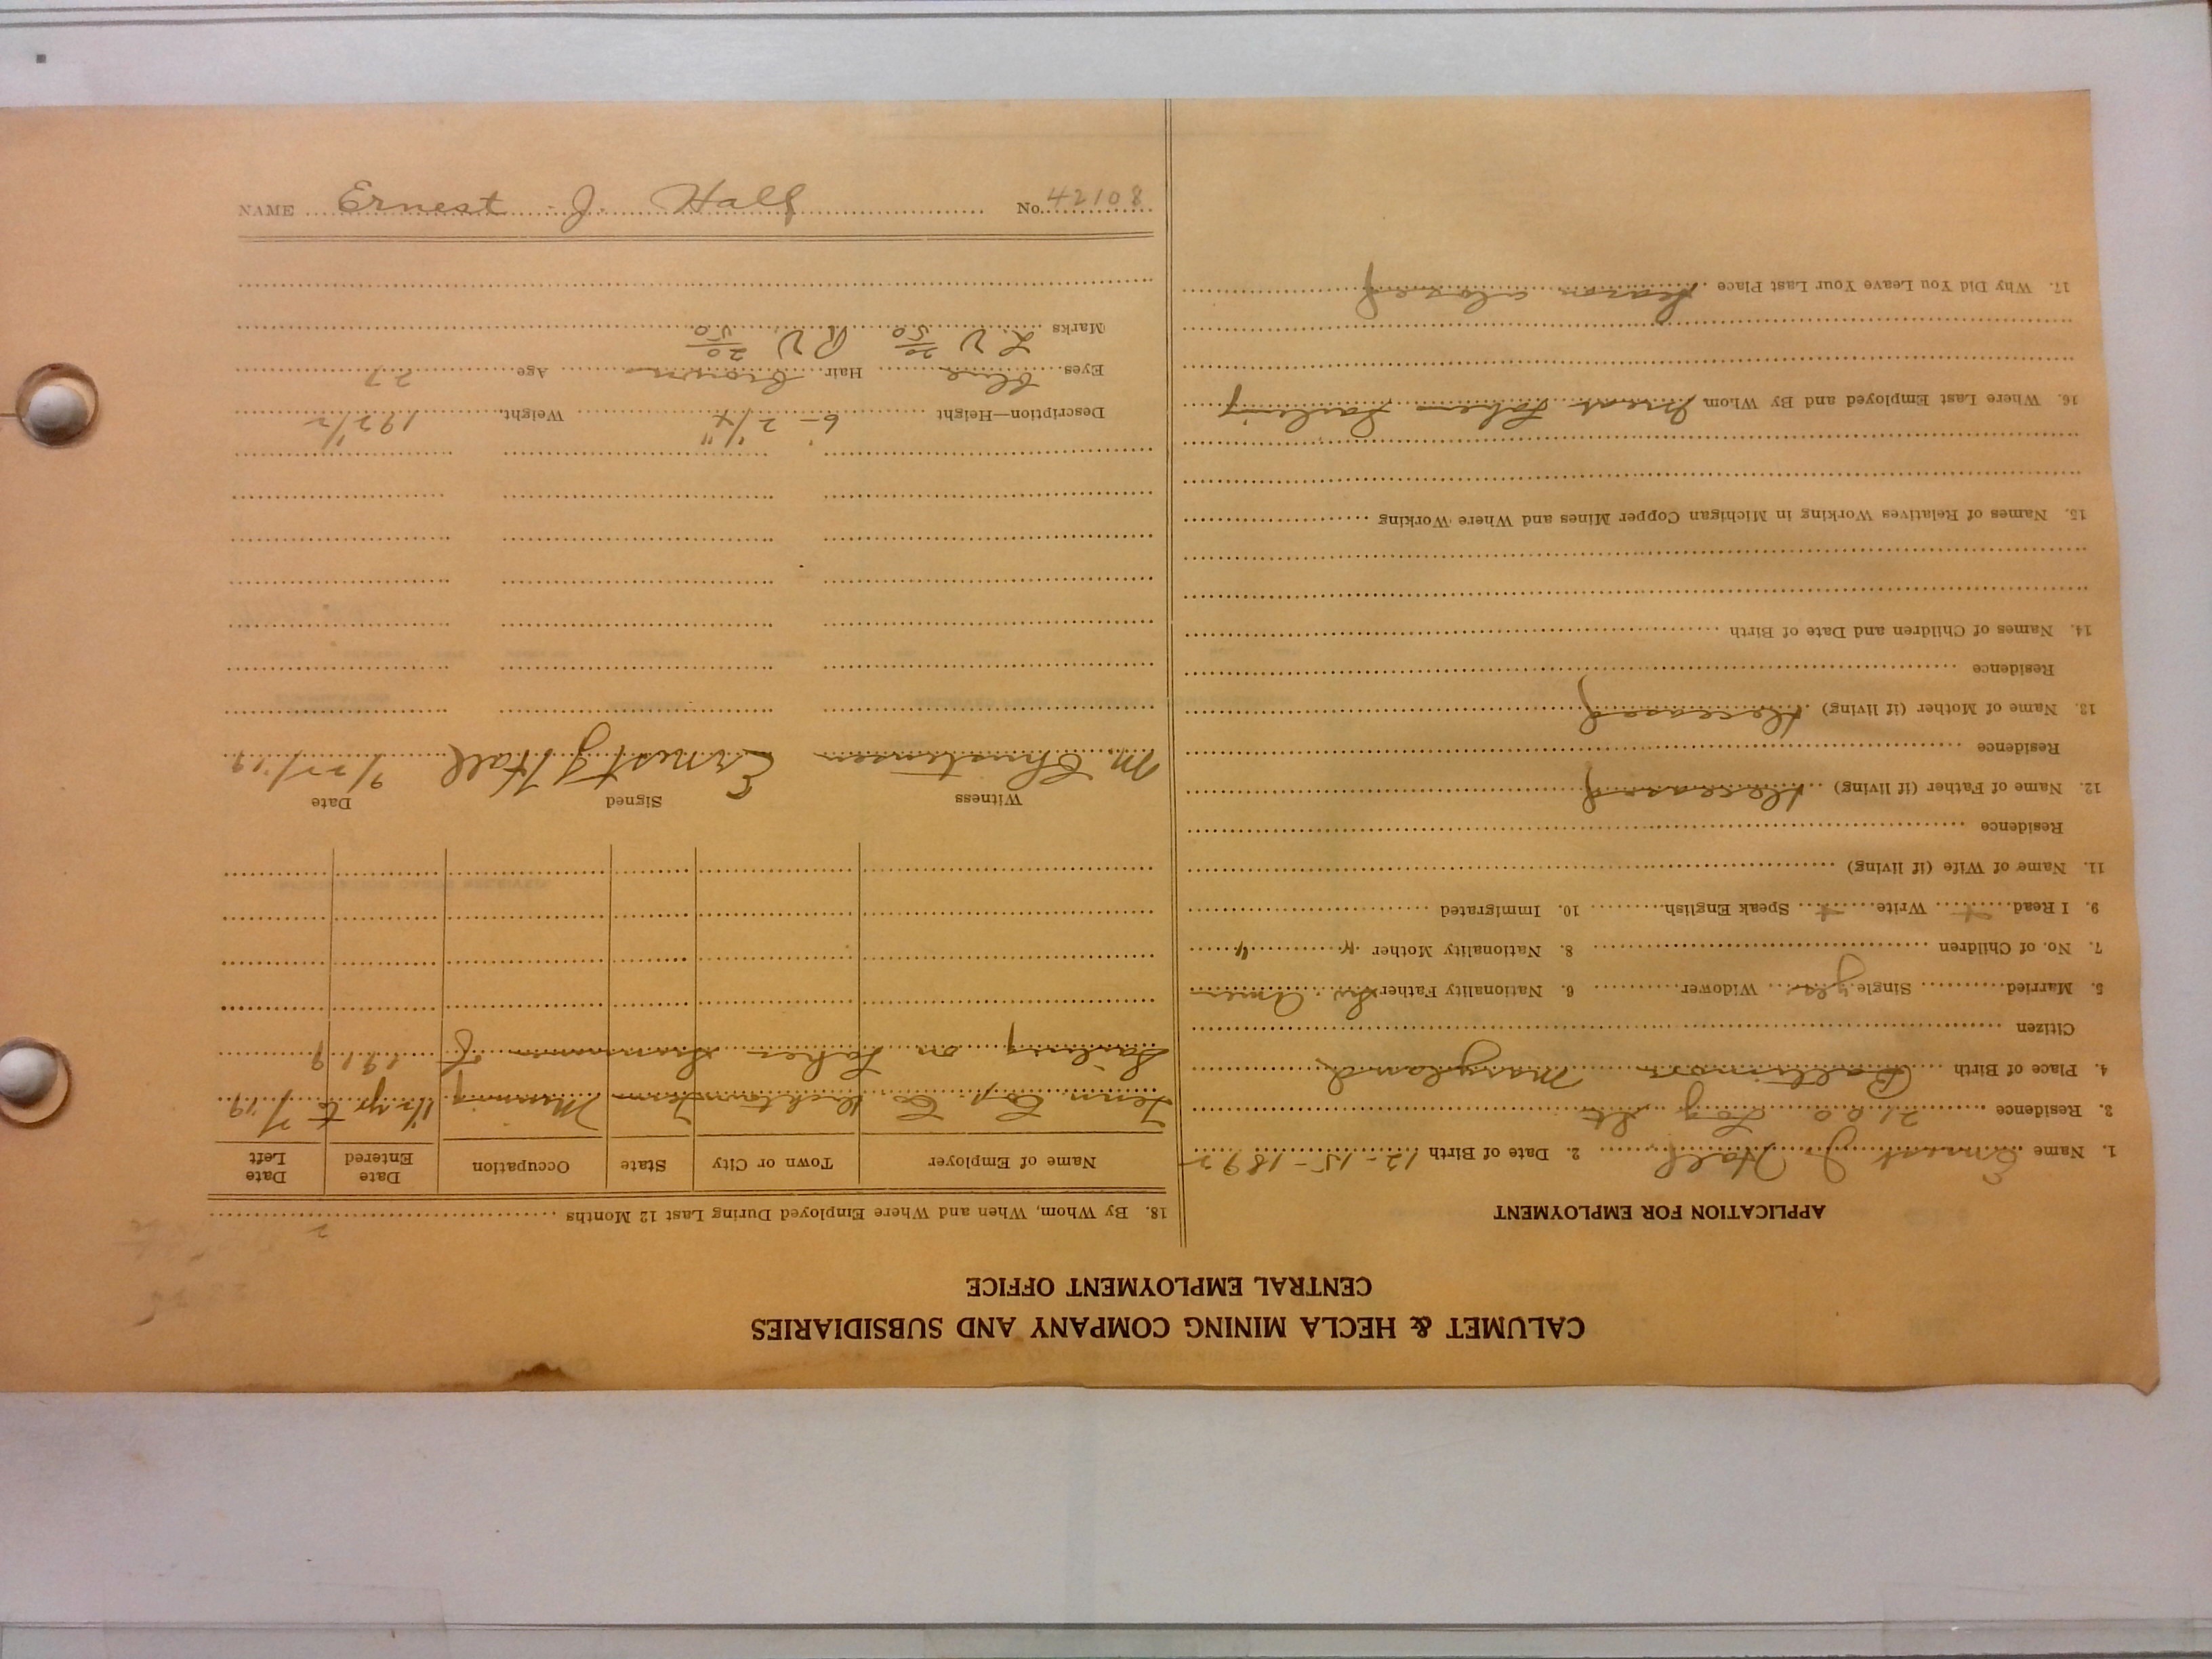 CALUMET & HECLA MINING COMPANY AND SUBSIDIARIES
CENTRAL EMPLOYMENT OFFICE
APPLICATION FOR EMPLOYMENT
1. Name Ernest J Hall 2. Date of Birth 12-15-1892
3. Residence 2100 St
4. Place of Birth Baltimore Maryland
Citizen
5. Married Single yes Widower 6. Nationality Father Amer
7. No. of Children 8. Nationality Mother " "
9. I Read + Write + Speak English 10. Immigrated
11. Name of Wife (if living)
Residence
12. Name of Father (if living) deceased
Residence
13. Name of Mother (if living) deceased
Residence
14. Names of Children and Date of Birth
15. Names of Relatives Working in Michigan Copper Mines and Where Working
16. Where Last Employed and By Whom Great Lakes Sailing
17. Why Did You Leave Your Last Place Season closed
18. By Whom, When and Where Employed During Last 12 Months
Name of Employer Town or City State Occupation Date Entered Date Left
Tenn Cop. Co Tenn Mining 1/2 yr to 7/19
Sailing on Lakes Summer of 1919
Witness Signed Date
M. Christensen Ernest J Hall 9/27/19
Description—Height 6'-2 1/4" Weight 192 1/2
Eyes blue Hair Brown Age 27
Marks L V 20/50 R V 20/50
NAME Ernest J. Hall No. 42108